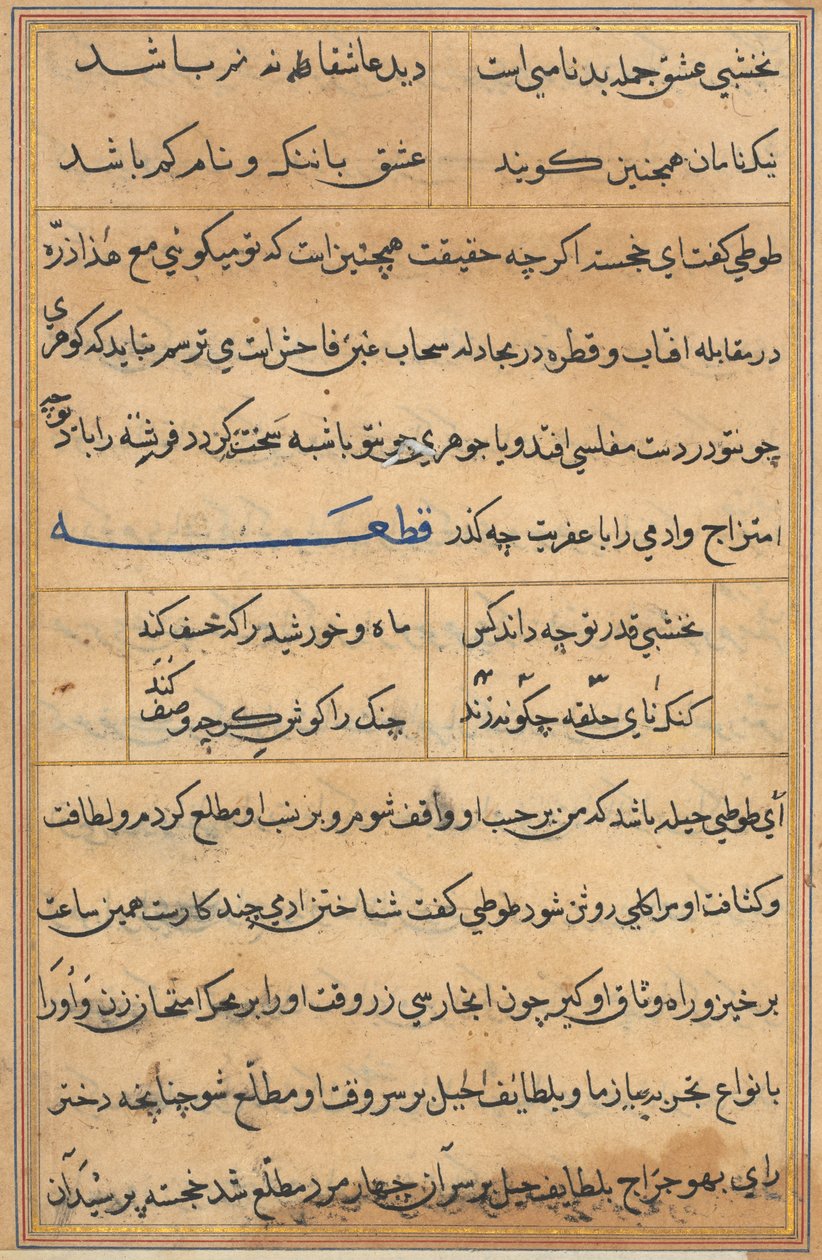 نخشبي عشق جمله بدنامي است دید عاشقان نه نم باشد
نیک نامان همچنین کویند عشق باننک و نام کم باشد
طوطي کفت اي خجسته اکرچه حقیقت همچنین است که تو میکوئي مع هذا ذرّه
در مقابله افتاب و قطره در مجادله سحاب غبن فاحش است مي ترسم نباید که کوهري
چونتو در دست مفلسي افتد و یا جوهري چونتو باشبه سخت کردد فرشته را با دیو چه
امتزاج و ادمي را با عفریت چه کذر قطعه
نخشبي قدر تو چه داند کس ماه و خورشید را که خسف کند
کنک نای حلقه چکونه زند چنک را کوش کرچه وصف کند
أي طوطي حیله باشد که من بر حسب او واقف شوم و بر نسب او مطالع کردم و لطافت
و کثافت او مرا کلي روشن شود طوطي کفت شناختن ادمي چند کارست همین ساعت
بر خیز و راه وثاق او کیر چون انجا رسي زر وقت او را بر محک امتحان زن و أورا
بانواع تجربه بیازما و بلطایف الحیل بر سر وقت او مطلّع شو چنانچه دختر
راي بهوجراج بلطایف حیل بر سر آن چهار مرد مطلّع شد خجسته پرسید آن